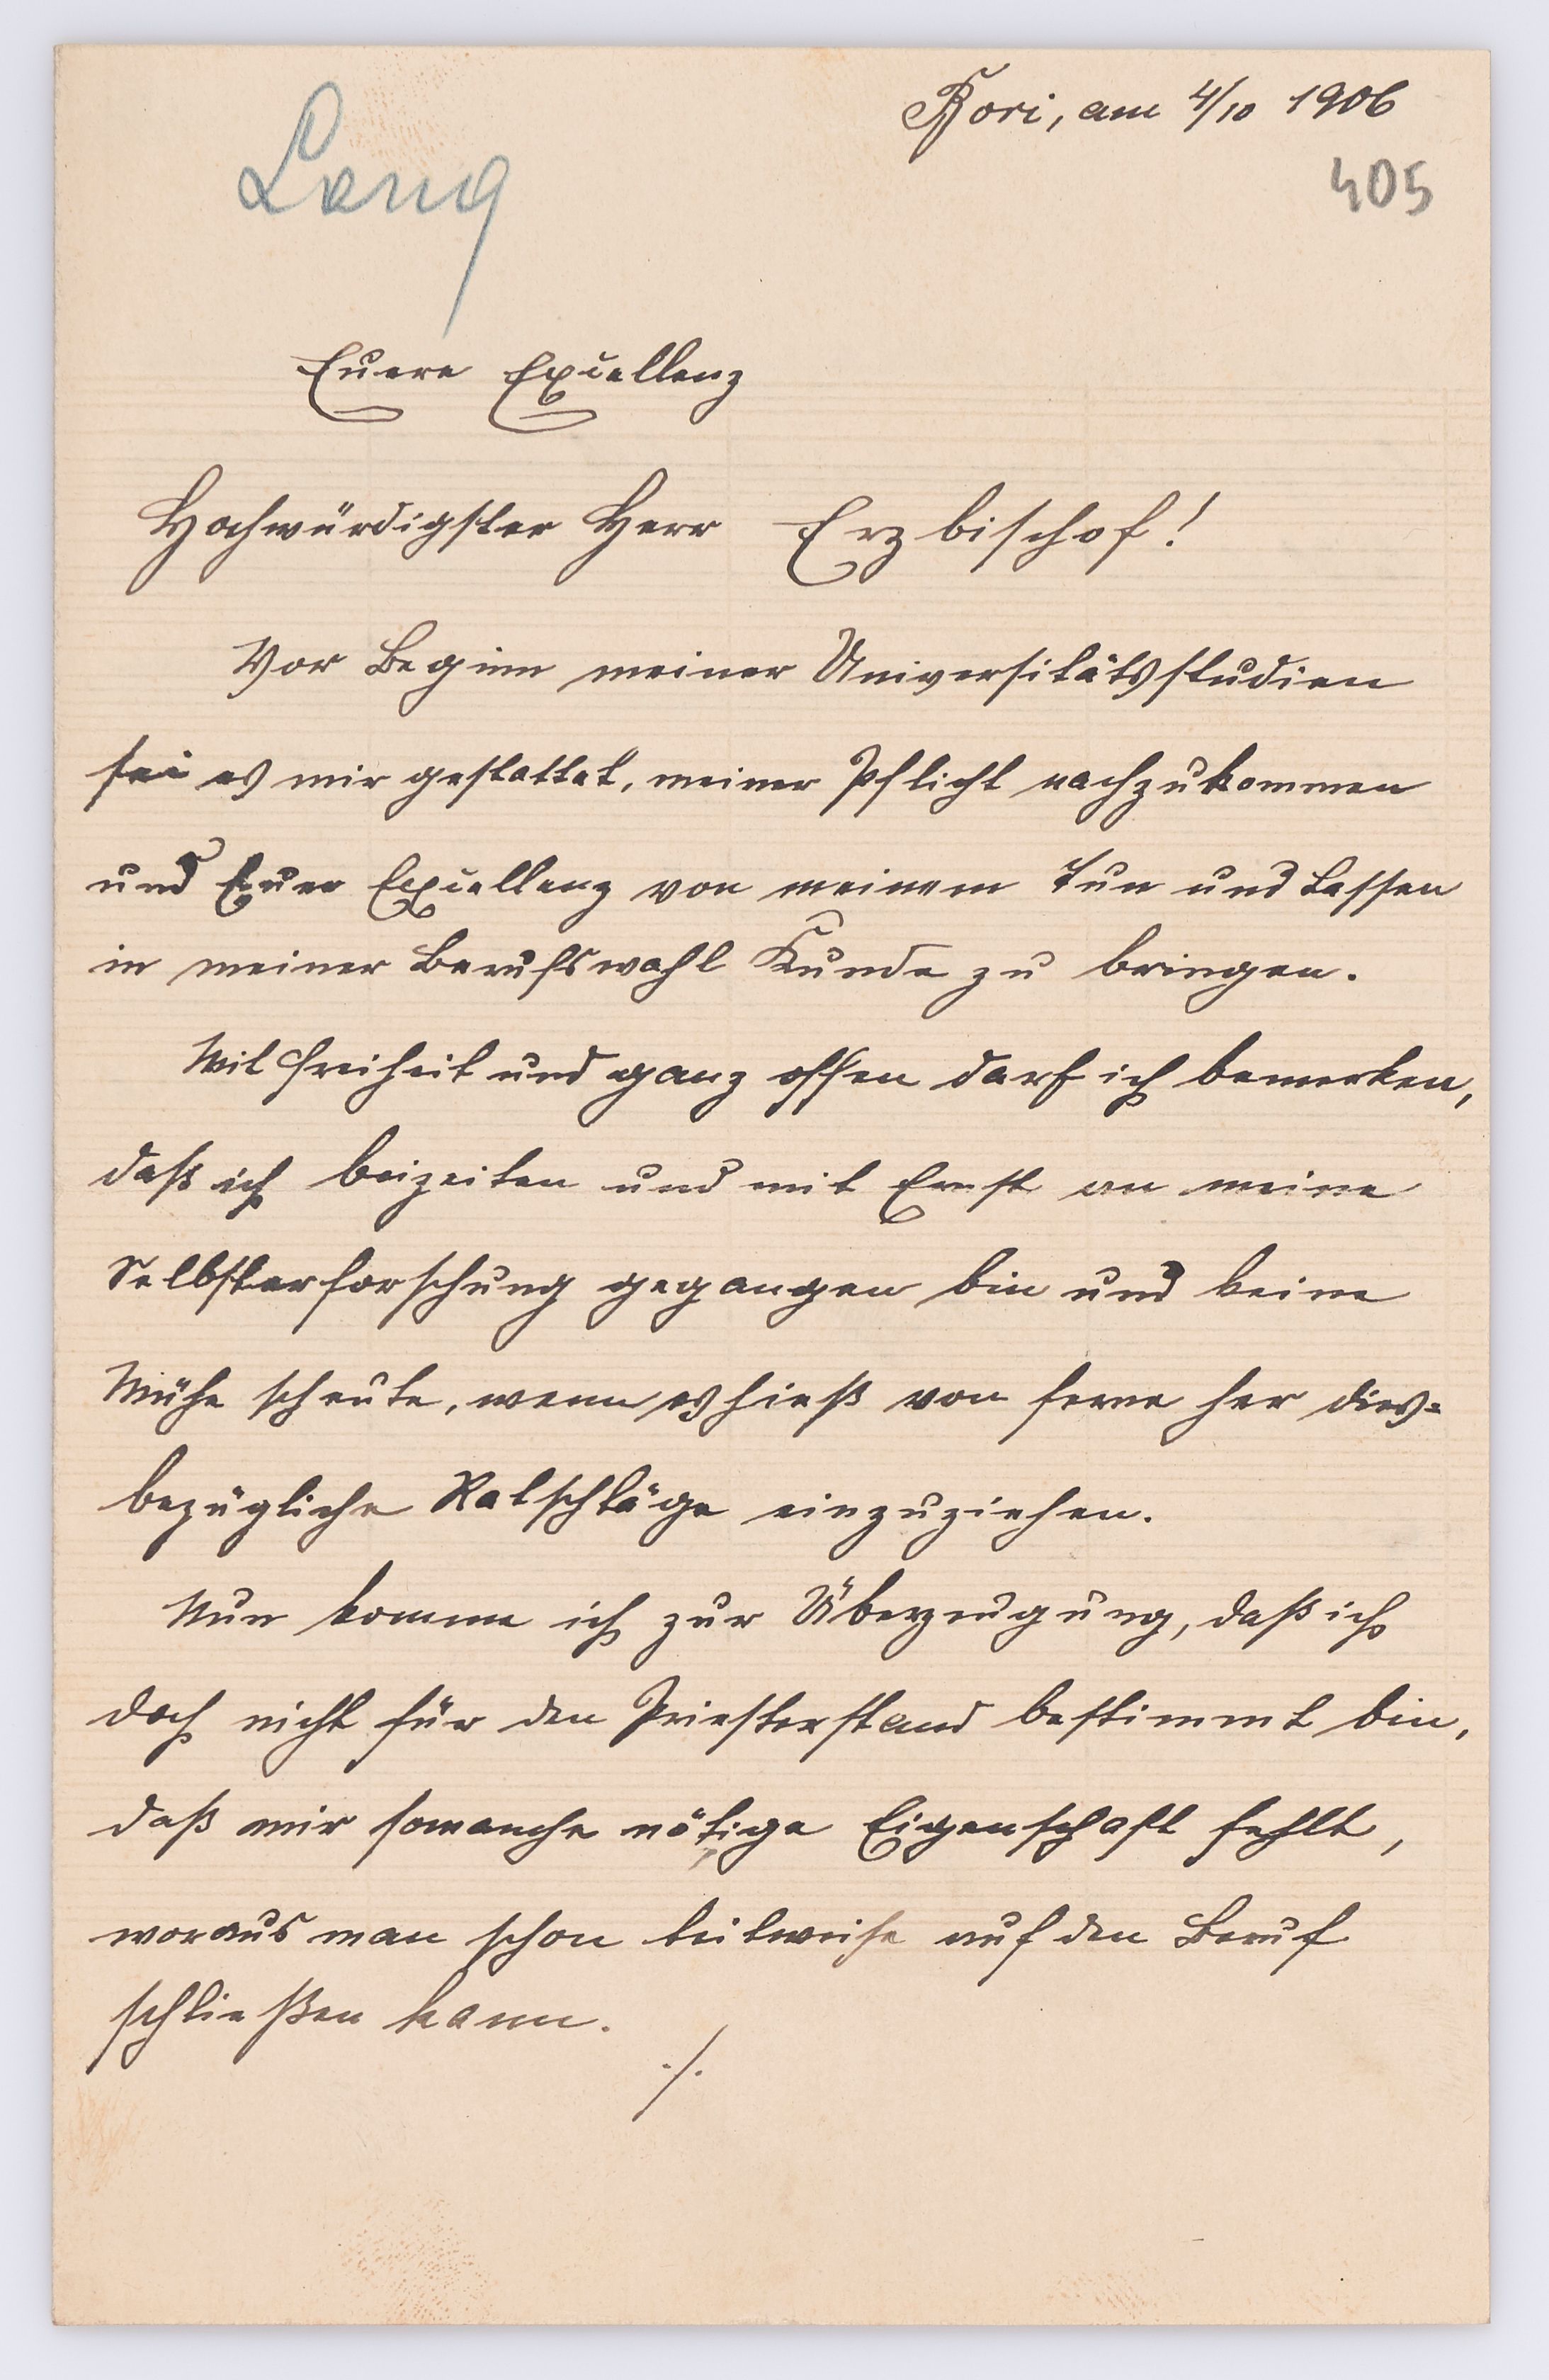 Bori, am 4/10 1906
Lang
405
Euere Excellenz
Hochwürdigster Herr Erzbischof!
Vor Beginn meiner Universitätsstudien
sei es mir gestattet, meiner Pflicht nachzukommen
und Euer Excellenz von meinem Tun und Lassen
in meiner Berufswahl Kunde zu bringen.
Mit Freiheit und ganz offen darf ich bemerken,
daß ich beizeiten und mit Ernst an meine
Selbsterforschung gegangen bin und keine
Mühe scheute, wenn es hieß von ferne her dies-
bezügliche Ratschläge einzuziehen.
Nun komme ich zur Überzeugung, daß ich
doch nicht für den Priesterstand bestimmt bin,
daß mir somanche nötige Eigenschaft fehlt,
woraus man schon teilweise auf den Beruf
schließen kann.
./.